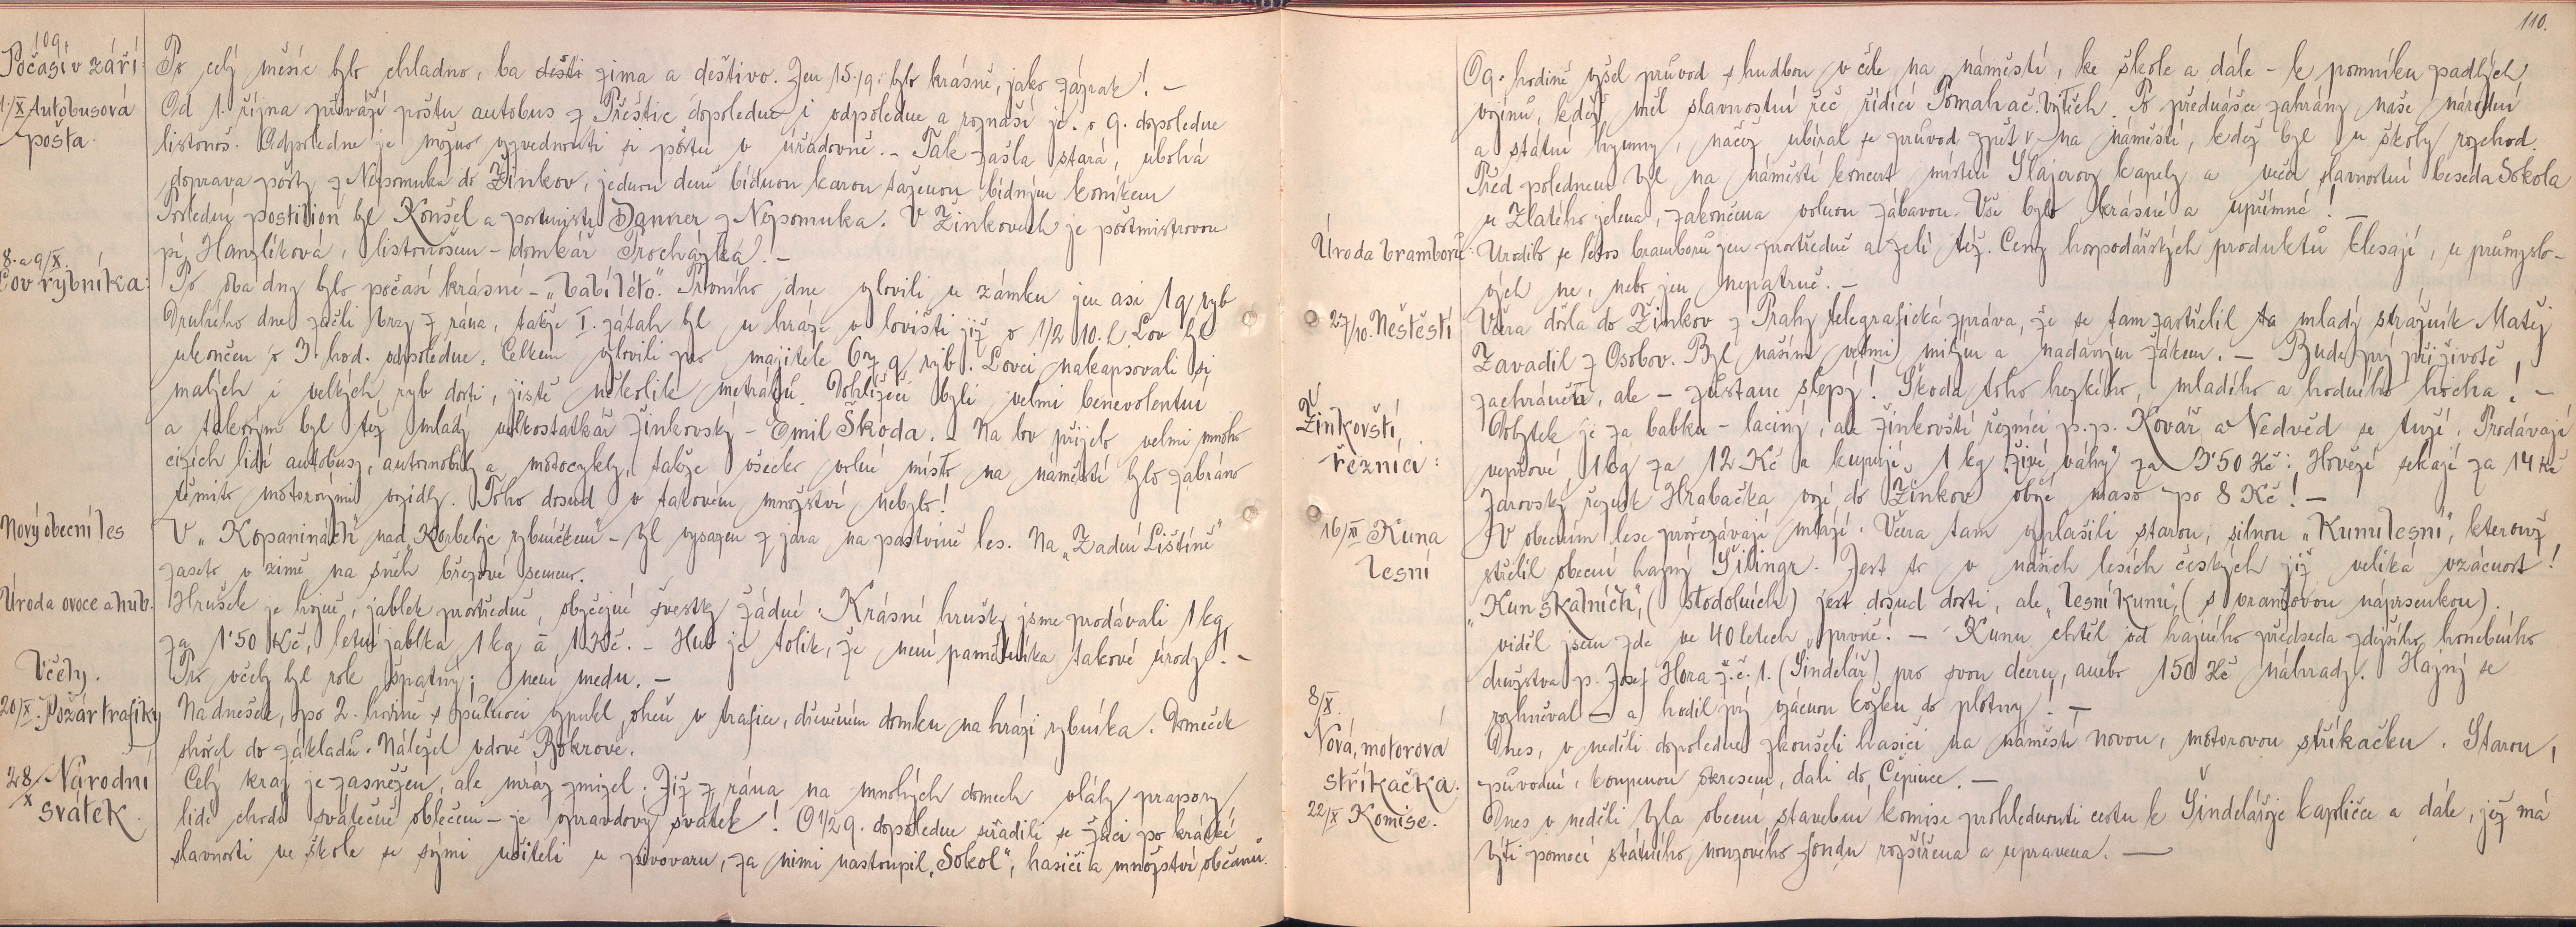 109.
Počasí v září:
Po celý měsíc bylo chladno, ba deští zima a deštivo. Jen 15./9. bylo krásně, jako zázrak! -
1./X Autobusová
pošta.
Od 1. října přiváží poštu autobus z Přeštic dopoledne i odpoledne a roznáší je. o 9. dopoledne
listonoš. Odpoledne je možno vyzvednouti si poštu v úřadovně. - Tak zašla stará, ubohá
doprava pošty z Nepomuka do Žinkov, jednou denně bídnou karou taženou bídným koníkem
Poslední postilion byl Konšel a poštmistr Danner z Nepomuka. V Žinkovech je poštmistrovou
pí. Hanzlíková, listonošem - domkář Procházka. -
8. a 9/X.
Lov rybníka:
Po oba dny bylo počasí krásné - „babí léto". Prvního dne vylovili u zámku jen asi 1 q ryb
Druhého dne začli brzy z rána, takže I. zátah byl u hráze v lovišti již o 1/2 10. h. Lov byl
ukončen o 3. hod. odpoledne. Celkem vylovili pro majitele 60 q ryb. Lovci nakapsovali si
malých i velkých ryb dosti, jistě několik metráků. Dohlížeči byli velmi benevolentní
a takovým byl též mladý velkostatkář žinkovský - Emil Škoda. - Na lov přijelo velmi mnoho
cizích lidí autobusy, automobily a motocykly, takže všecko volné místo na náměstí bylo zabráno
těmito motorovými vozidly. Toho dosud v takovém množství nebylo!
Nový obecní les
V „Kopaninách" nad „Korbelovic rybníčkem" - byl vysazen z jara na pastvině les. Na „Zadní Lištině"
zaseto v zimě na sněh březové semeno.
Úroda ovoce a hub.
Hrušek je hojně, jablek prostředně, obyčejné švestky žádné. Krásné hrušky jsme prodávali 1 kg
za 1'50 Kč, letní jablka 1 kg á 1 Kč. - Hub je tolik, že není pamětníka takové úrody! -
Včely.
Pro včely byl rok špatný; není medu. -
20/X. Požár trafiky
Na dnešek, po 2. hodině s půlnoci vypukl oheň v trafice, dřevěném domku na hrázi rybníka. Domeček
shořel do základů. Náležel vdově Bokrové.
28/X Národní
svátek.
Celý kraj je zasněžen, ale mráz zmizel. Již z rána na mnohých domech vlály prapory
lidé chodí svátečně oblečeni - je opravdový svátek! O 1/2 9. dopoledne seřadili se žáci po krátké
slavnosti ve škole se svými učiteli u pivovaru, za nimi nastoupil „Sokol", hasiči a množství občanů.
110.
O 9. hodině vyšel průvod s hudbou v čele na náměstí, ke škole a dále - k pomníku padlých
vojínů, kdež měl slavnostní řeč řídící Pomahač Vojtěch. Po přednášce zahrány naše národní
a státní hymny, načež ubíral se průvod zpět na náměstí, kdež byl u školy rozchod.
Před polednem byl na náměstí koncert místní Šlajerovy kapely a večer slavnostní beseda Sokola
u Zlatého jelena, zakončena volnou zábavou. Vše bylo krásné a upřímné! -
Úroda bramborů:
Urodilo se letos bramborů jen prostředně a zelí též. Ceny hospodářských produktů klesají, u průmyslo-
vých ne, nebo jen nepatrně. -
27/10. Neštěstí
Včera došla do Žinkov z Prahy telegrafická zpráva, že se tam zastřelil mladý strážník Matěj
Zavadil z Osobov. Byl naším velmi milým a nadaným žákem. - Bude prý při životě
zachráněn, ale - zůstane slepý! Škoda toho hezkého, mladého a hodného hocha! -
Žinkovští
řezníci:
Dobytek je za babku - laciný, ale žinkovští řezníci p.p. Kovář a Nedvěd se tuží. Prodávají
vepřové 1 kg za 12 Kč a kupují 1 kg „živé váhy" za 3'50 Kč: Hovězí sekají za 14 Kč
Žarovský řezník Hrabačka vozí do Žinkov obojí maso po 8 Kč! -
16/XI Kuna
lesní
V obecním lese prořezávají mlází. Včera tam vyplašili starou, silnou „Kunu lesní", kterouž
střelil obecní hajný Šilingr. Jest to v našich lesích českých již veliká vzácnost!
„Kun skalních", (stodolních) jest dosud dosti, ale „lesní kunu", (s oranžovou náprsenkou).
viděl jsem zde ve 40 letech „prvně". - Kunu chtěl od hajného předseda zdejšího honebního
družstva p. Josef Hora ž. č. 1. (Šindelář) pro svou dceru, anebo 150 Kč náhrady. Hajný se
rozhněval - a hodil prý vzácnou kožku do plotny! -
8/X.
Nová, motorová
stříkačka.
Dnes, v neděli dopoledne zkoušeli hasiči na náměstí novou, motorovou stříkačku. Starou,
původní, koupenou okresem, dali do Čepince. -
22/X Komise.
Dnes v neděli byla obecní stavební komise prohlednouti cestu k Šindelářovic kapličce a dále, jež má
býti pomocí státního, nouzového fondu rozšířena a upravena. -